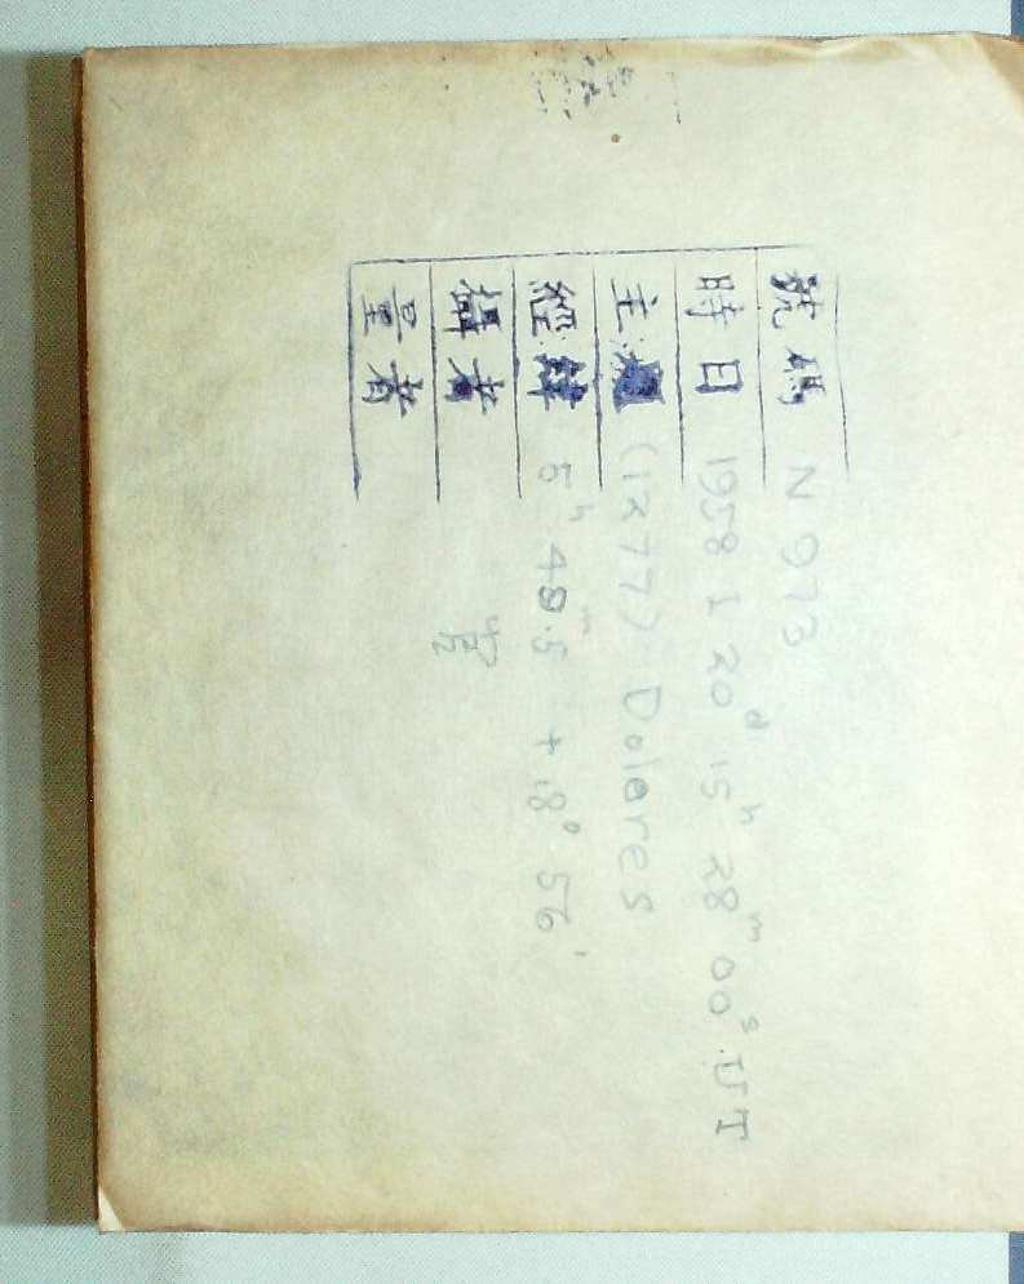 號碼 N 973
時日 1958 I 20ᵈ 15ʰ 28ᵐ 00ˢ UT
主題 (1277) Dolores
經緯 5ʰ 48ᵐ.5 +18° 56'
攝者
量者